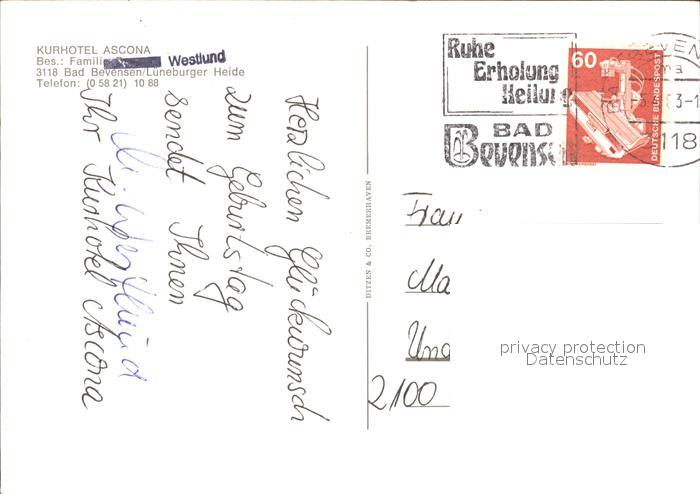 KURHOTEL ASCONA
Bes.: Famili Westlund
3118 Bad Bevensen/Lüneburger Heide
Telefon: (0 58 21) 10 88
Herzlichen Glückwunsch
zum Geburtstag
sendet Ihnen
Ihr Kurhotel Ascona
Westlund
DITZEN & CO. BREMERHAVEN
Ruhe
Erholung
Heilung
BAD
Bevensen
60
DEUTSCHE BUNDESPOST
Frau
Ma
Und
2100
privacy protection
Datenschutz